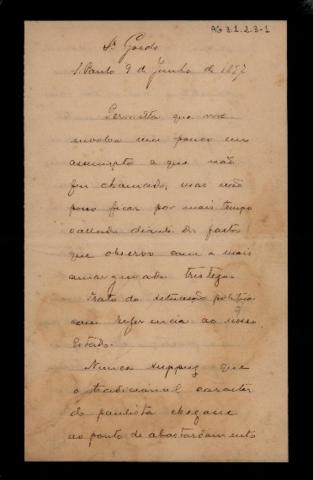 AG 3.1.2.3-1
Sr Gordo
S. Paulo 9 de Junho de 1897
Permitta que me
envolva um pouco em
assumpto a que não
fui chamado, mas não
posso ficar por mais tempo
callado diante de factos
que observo com a mais
amargurada tristeza.
Trato da situação politica
com referencia ao nosso
Estado.
Nunca suppuz que
o tradicional caracter
do paulista chegasse
ao ponto de abastardamento